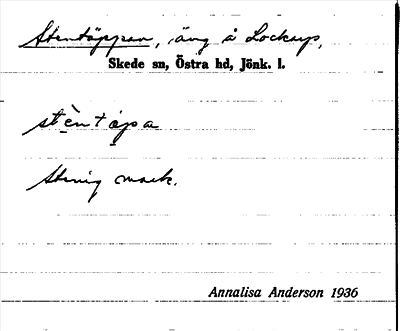 Stentäppan, äng å Lockarp,
Skede sn, Östra hd, Jönk. l.
stèntäpa
Stenig mark.
Annalisa Anderson 1936